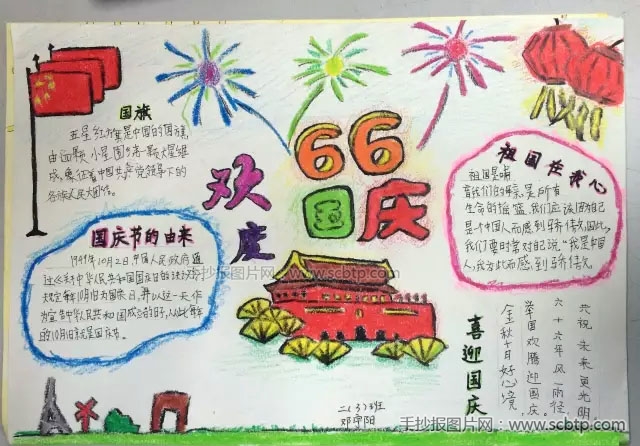 国旗
五星红旗是中国的国旗,
由四颗小星围绕一颗大星组
成,象征着中国共产党领导下的
各族人民大团结。
欢度
66
国庆
国庆节的由来
1949年10月2日,中国人民政府通
规定每年10月1日为国庆日,并以这一天作
为宣告中华人民共和国成立的日子,从此每年
的10月1日就是国庆节。
祖国在我心
祖国是啊
是我们的母亲,是所有
生命的摇篮,我们应该因自己
是个中国人而感到骄傲。因此,
我们要时常对自己说:“我是中国
人,我为此而感到骄傲。”
喜迎国庆
金秋十月好心境,
举国欢腾迎国庆。
六十六年风雨径,
共祝未来更光明。
二(3)班
手抄报图片网:www.scbtp.com
手抄报图片网-www.scbtp.com